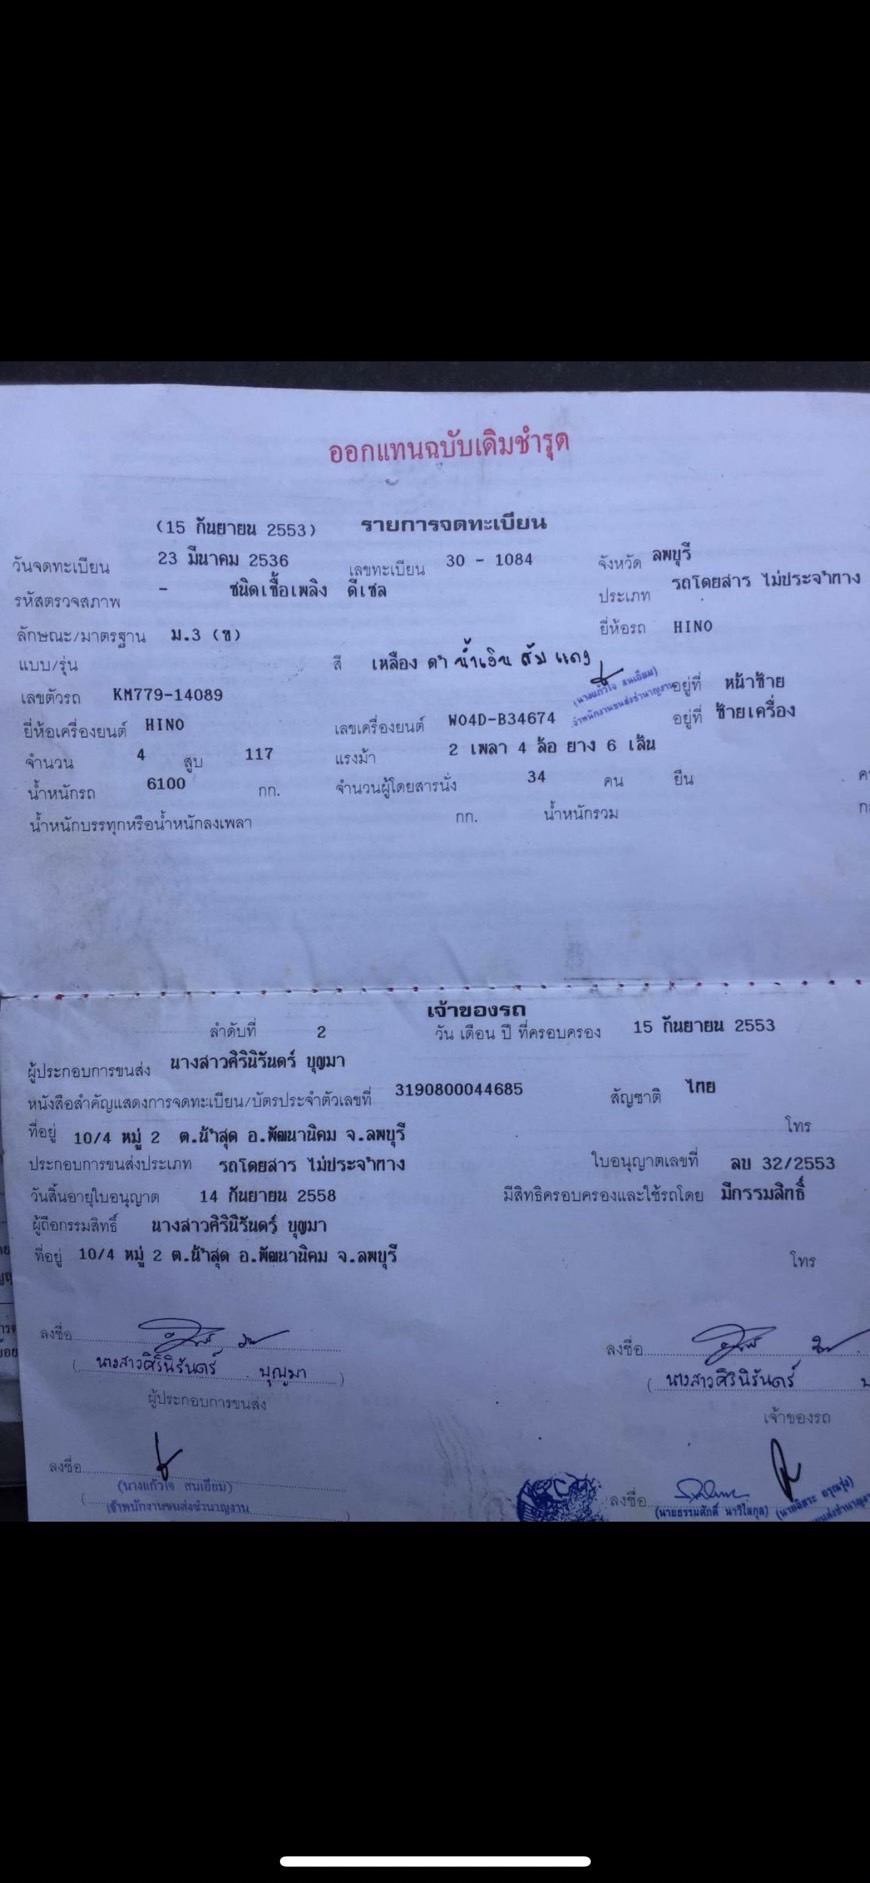 ออกแทนฉบับเดิมชำรุด
(15 กันยายน 2553) รายการจดทะเบียน
วันจดทะเบียน 23 มีนาคม 2536 เลขทะเบียน 30 - 1084 จังหวัด ลพบุรี
รหัสตรวจสภาพ - ชนิดเชื้อเพลิง ดีเซล ประเภท รถโดยสาร ไม่ประจำทาง
ลักษณะ/มาตรฐาน ม.3 (ข) ยี่ห้อรถ HINO
แบบ/รุ่น สี เหลือง ดำ น้ำเงิน ส้ม แดง
(นางแก้วใจ สนเอี่ยม)
เจ้าพนักงานขนส่งชำนาญงาน
เลขตัวรถ KM779-14089 อยู่ที่ หน้าซ้าย
ยี่ห้อเครื่องยนต์ HINO เลขเครื่องยนต์ W04D-B34674 อยู่ที่ ซ้ายเครื่อง
จำนวน 4 สูบ 117 แรงม้า 2 เพลา 4 ล้อ ยาง 6 เส้น
น้ำหนักรถ 6100 กก. จำนวนผู้โดยสารนั่ง 34 คน ยืน
น้ำหนักบรรทุกหรือน้ำหนักลงเพลา กก. น้ำหนักรวม
เจ้าของรถ
ลำดับที่ 2 วัน เดือน ปี ที่ครอบครอง 15 กันยายน 2553
ผู้ประกอบการขนส่ง นางสาวศิรินิรันดร์ บุญมา
หนังสือสำคัญแสดงการจดทะเบียน/บัตรประจำตัวเลขที่ 3190800044685 สัญชาติ ไทย
ที่อยู่ 10/4 หมู่ 2 ต.น้ำสุด อ.พัฒนานิคม จ.ลพบุรี โทร
ประกอบการขนส่งประเภท รถโดยสาร ไม่ประจำทาง ใบอนุญาตเลขที่ ลบ 32/2553
วันสิ้นอายุใบอนุญาต 14 กันยายน 2558 มีสิทธิครอบครองและใช้รถโดย มีกรรมสิทธิ์
ผู้ถือกรรมสิทธิ์ นางสาวศิรินิรันดร์ บุญมา
ที่อยู่ 10/4 หมู่ 2 ต.น้ำสุด อ.พัฒนานิคม จ.ลพบุรี โทร
ลงชื่อ ลงชื่อ
(นางสาวศิรินิรันดร์ บุญมา) (นางสาวศิรินิรันดร์
ผู้ประกอบการขนส่ง เจ้าของรถ
ลงชื่อ ลงชื่อ
(นางแก้วใจ สนเอี่ยม)
เจ้าพนักงานขนส่งชำนาญงาน